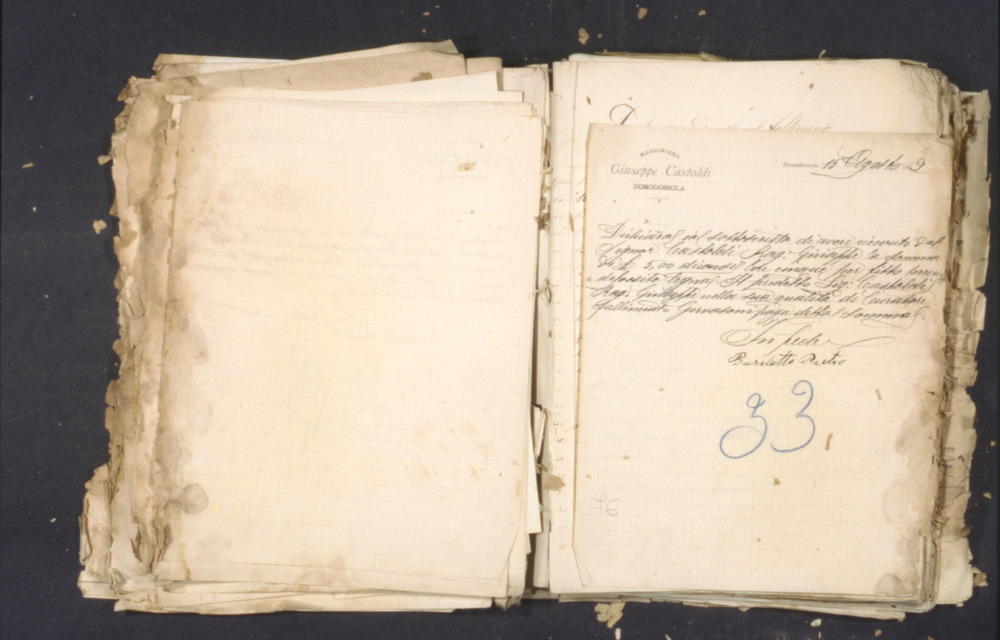 fallimento
RAGIONIERE
Giuseppe Castoldi
DOMODOSSOLA
Domodossola 15 Agosto 9
Dichiara il sottoscritto di avere ricevuto dal
Signor Castoldi Rag. Giuseppe la somma
di £ 5,00 cinque per fitto
deposito legna. Il predetto Sig. Castoldi
Rag. Giuseppe nella sua qualità di Curatore
fallimento paga detta somma
In fede
Pietro
33
76